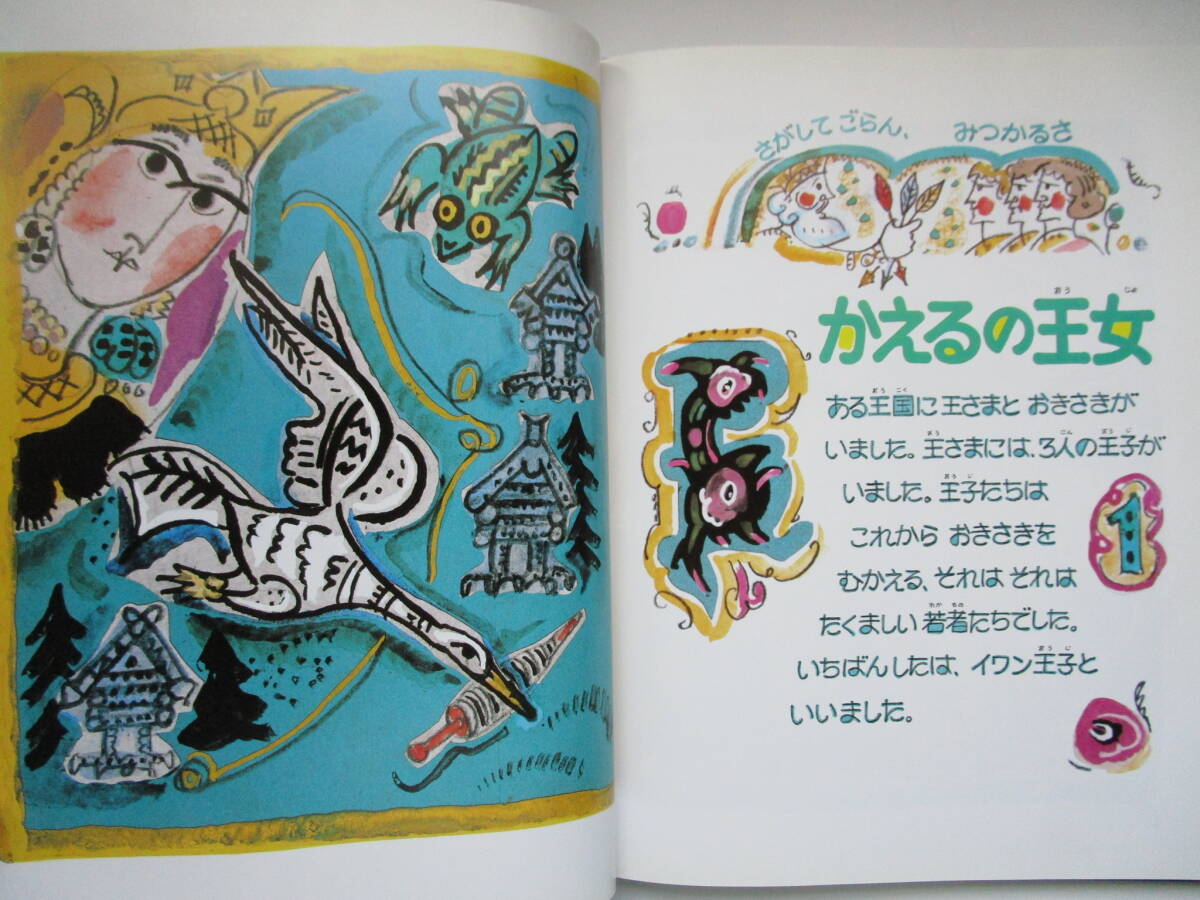 さがして ごらん、 みつかるさ
かえるの王女
ある王国に 王さまと おきさきが
いました。王さまには、3人の王子が
いました。王子たちは
これから おきさきを
むかえる、それは それは
たくましい 若者たちでした。
いちばんしたは、イワン王子と
いいました。
1